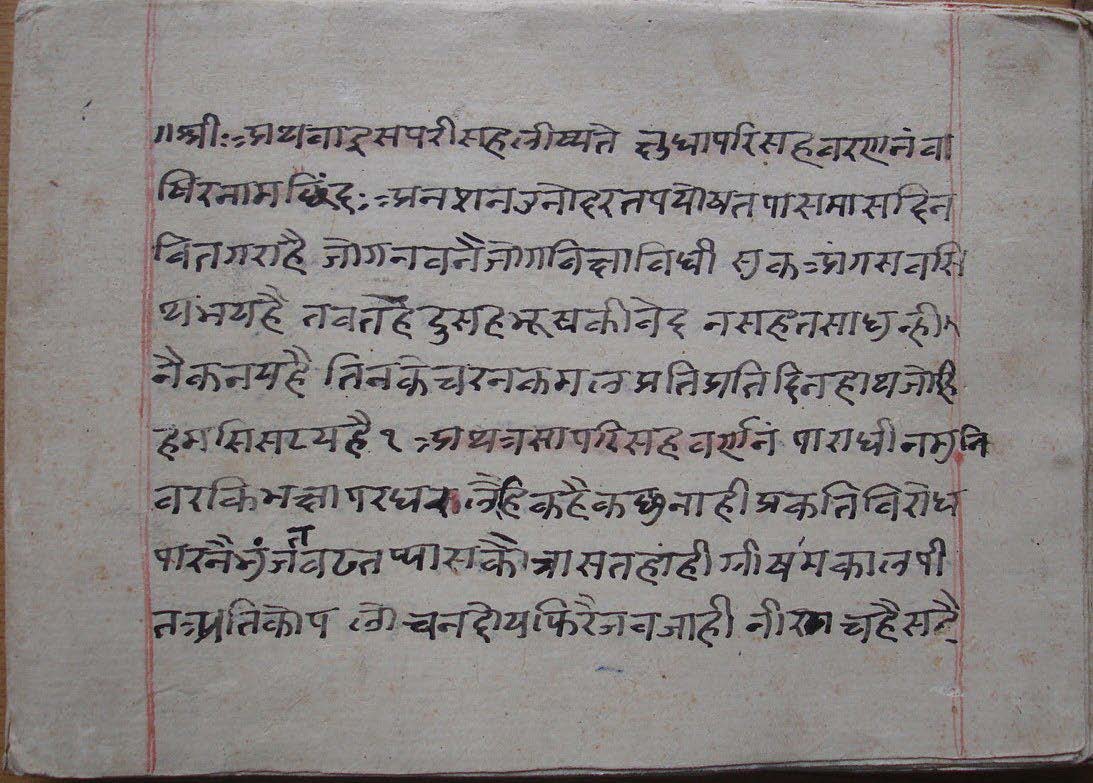 ॥श्रीः अथ वाइस परीसह लीष्यते क्षुधापरिसह वरणनं वा
धिरनाम छिंदः अनशन उनोदर तप पोषत पास मास दिन
वित गरा है जोग न वनै जोग भिक्षा विधी सुक अंग सव सि
थ भय है तव तहै दुसह भूष की वेद न सहत साध न्ही
नैक नय है तिनके चरन कमल प्रति प्रति दिन हाथ जोरि
हम सिस टय है १ अथ त्रसा परिसह वर्णनं पाराधीन मुनि
वर कि भक्षा पर घर लैहि कहै कछु नाही प्रकति विरोध
पारनै भुंजत वढत प्यास कौ त्रास तहांही ग्रीषम काल पी
त अति कोप लोचन दोय फिरै जव जाही नीर चहै सहै